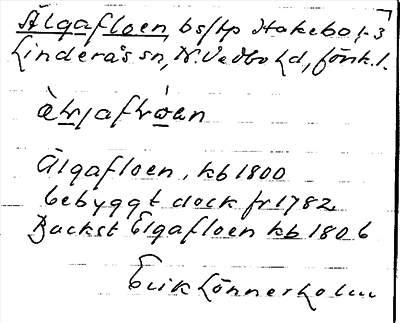 Älgafloen, bs/tp Hakebo 1-3
Linderås sn, N. Vedbo hd, Jönk. l.
Älgafloen, kb 1800
bebyggt dock fr 1782
Backst Elgafloen kb 1806
Erik Lönnerholm